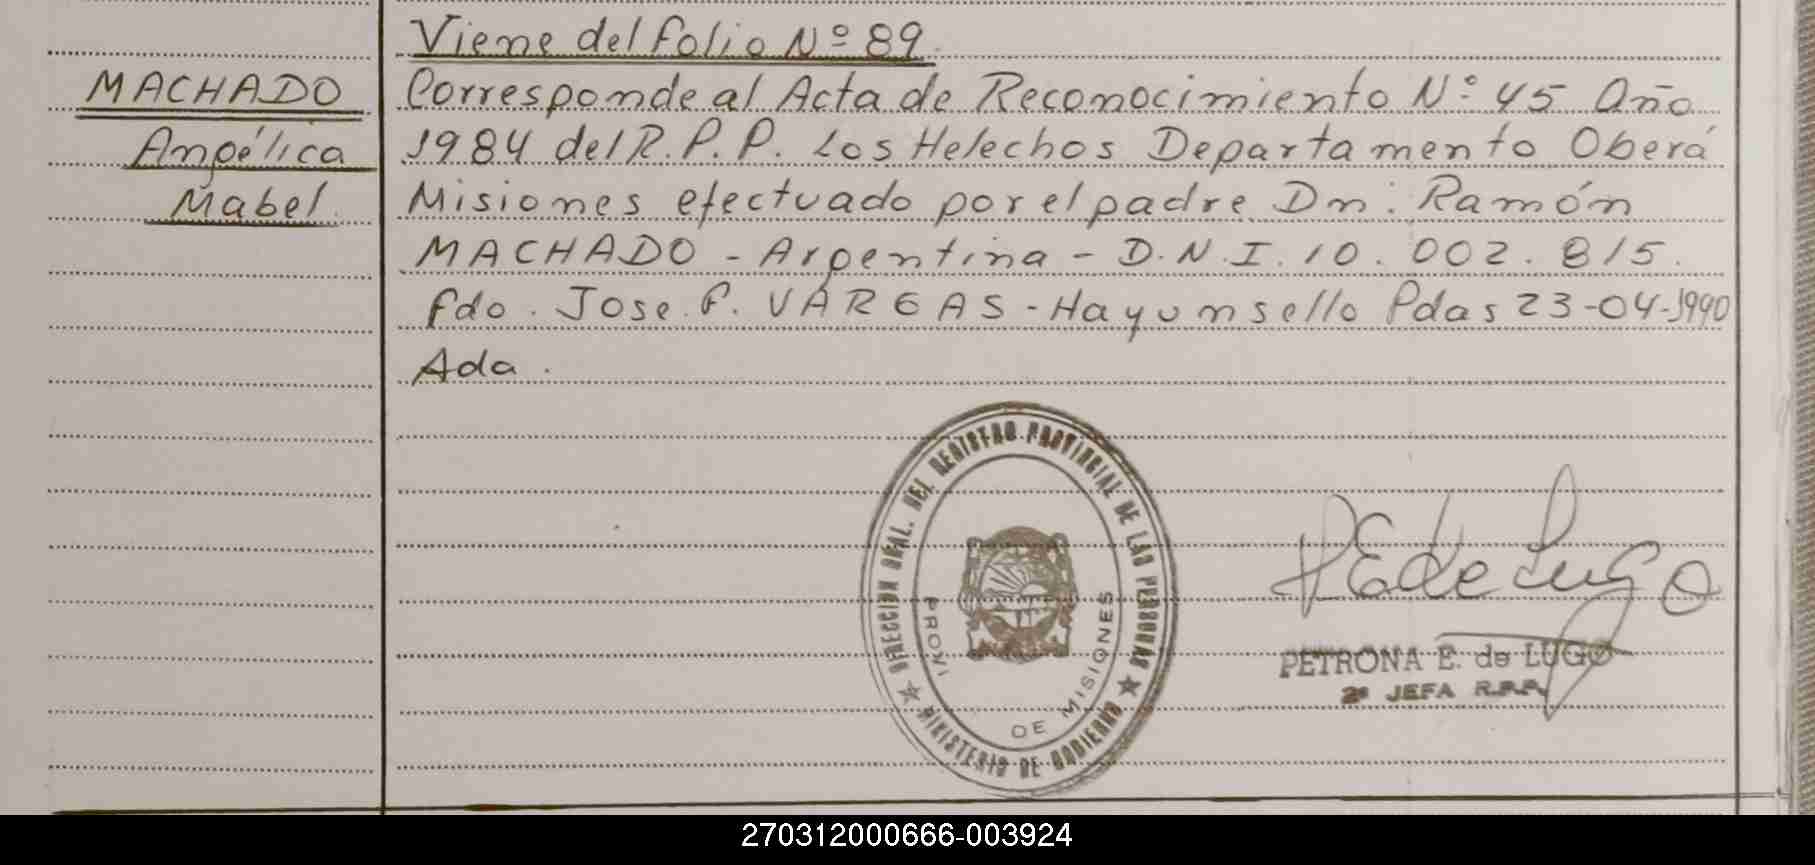 Viene del folio Nº 89.
MACHADO
Angélica
Mabel.
Corresponde al Acta de Reconocimiento Nº 45 Año
1984 del R.P.P. Los Helechos Departamento Oberá
Misiones efectuado por el padre Dn. Ramón
MACHADO - Argentina - D.N.I. 10.002.815.
fdo. Jose F. VARGAS - Hay un sello Pdas 23-04-1990
Ada.
DIRECCION GRAL. DEL REGISTRO PROVINCIAL DE LAS PERSONAS
MINISTERIO DE GOBIERNO
PROVI
DE MISIONES
PEde Lugo
PETRONA E. de LUGO
2ª JEFA R.P.P.
270312000666-003924